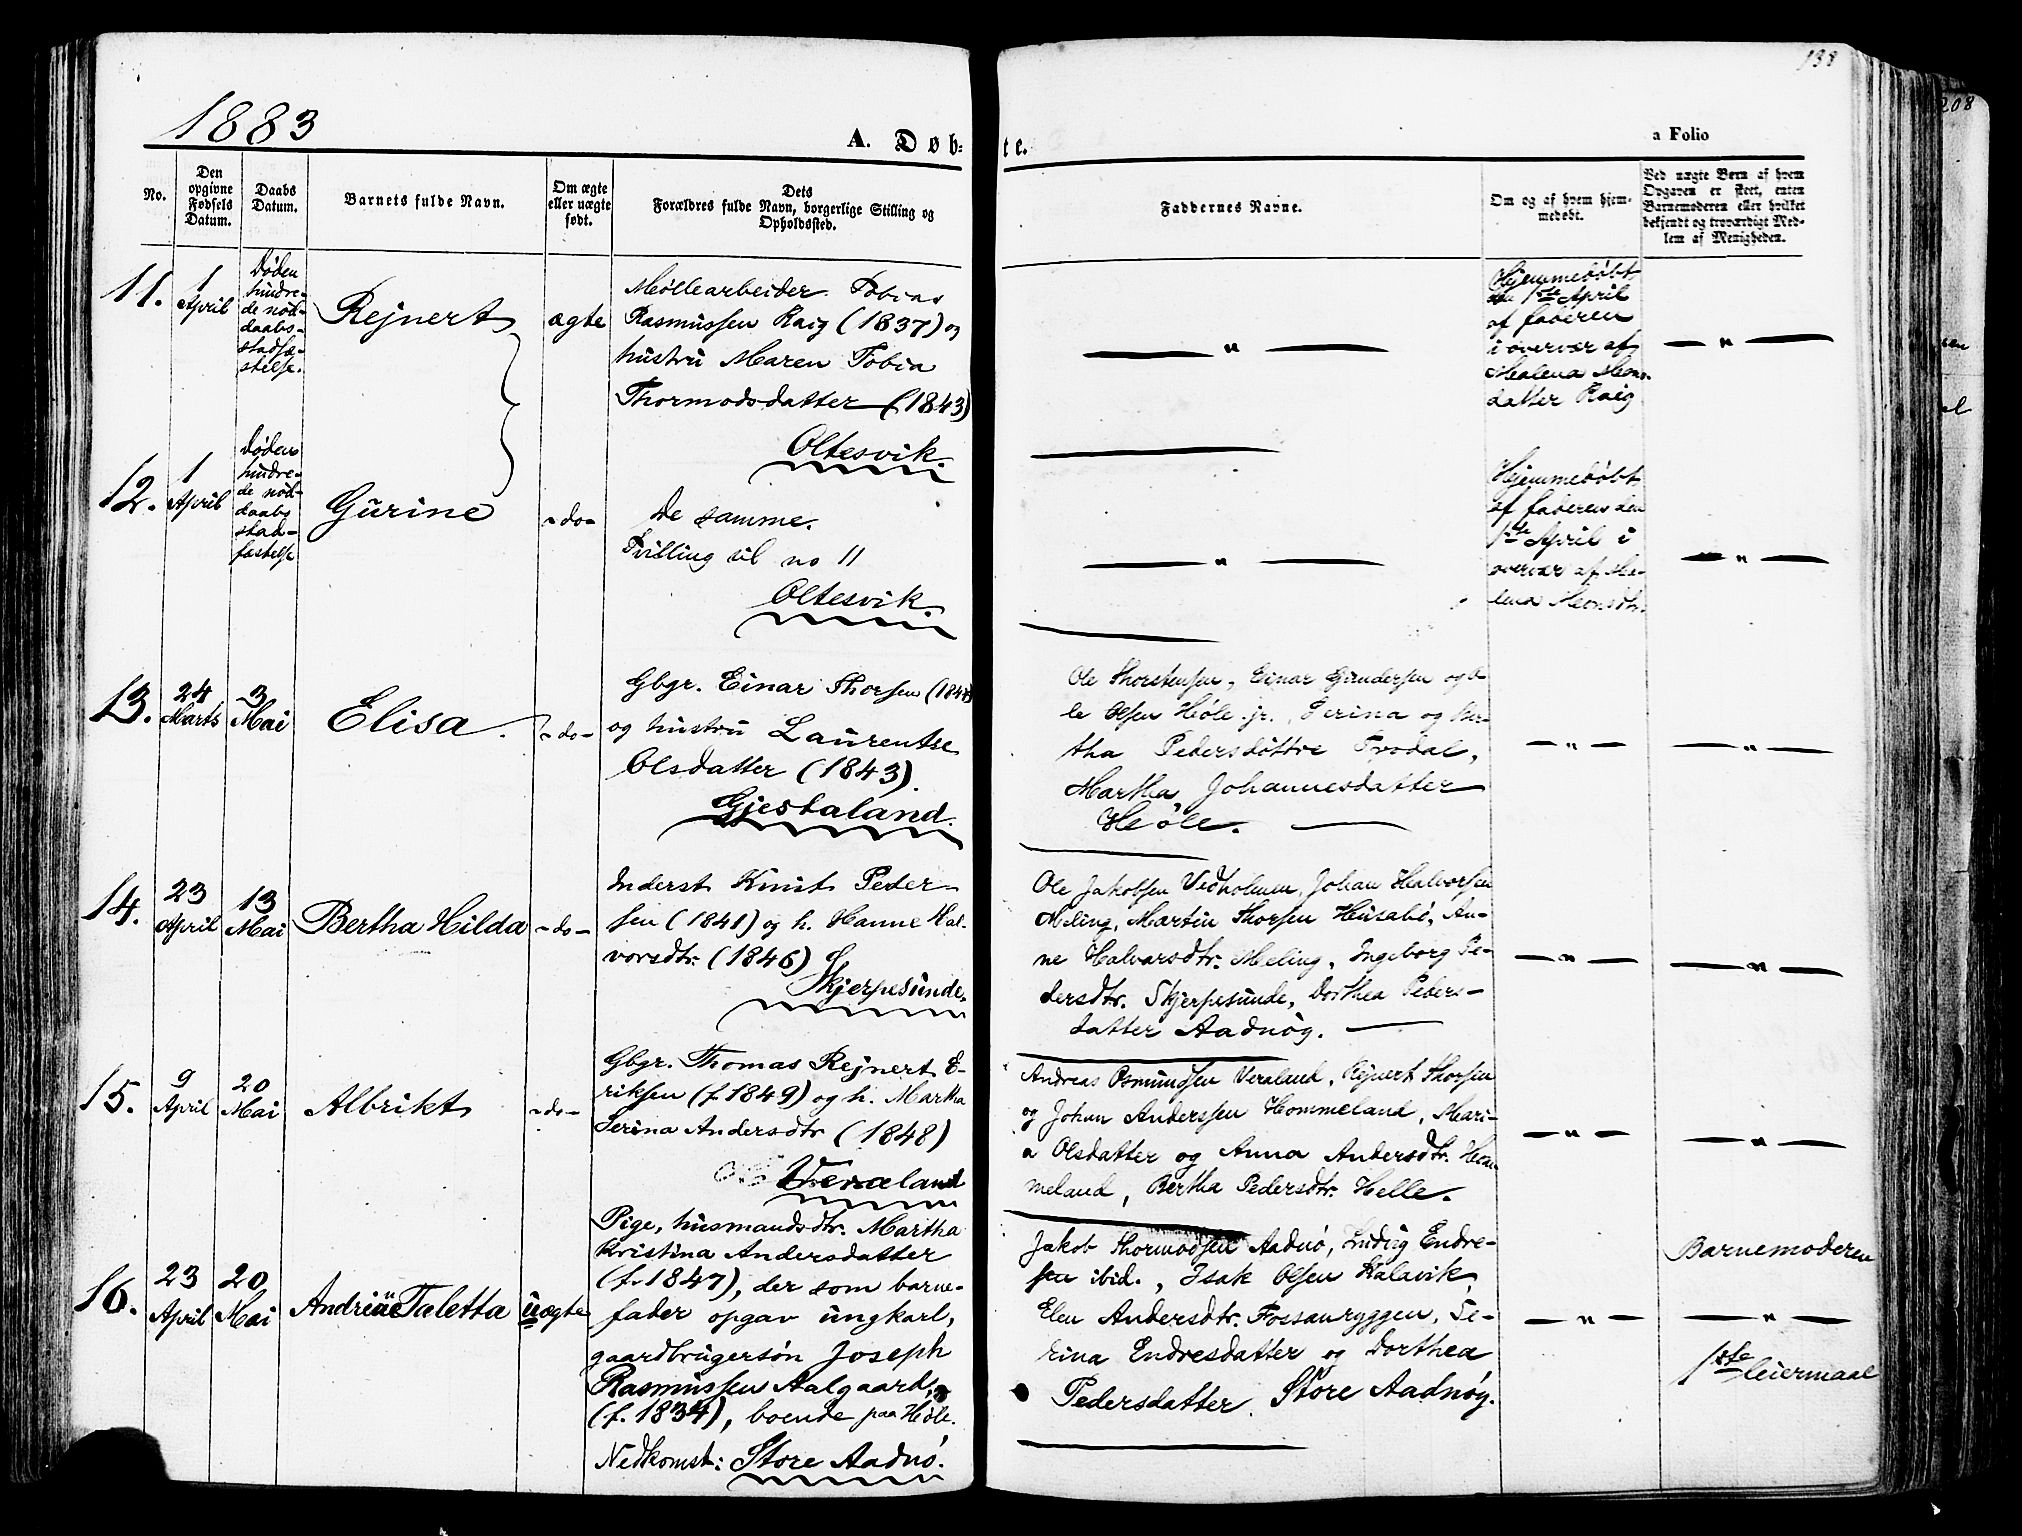 138
208
1883
A. Døbte.
a Folio
No.
Den opgivne Fødsels Datum.
Daabs Datum.
Barnets fulde Navn.
Om ægte eller uægte født.
Dets Forældres fulde Navn, borgerlige Stilling og Opholdssted.
Faddernes Navne.
Om og af hvem hjemmedøbt.
Ved uægte Børn af hvem Opgaven er skeet, enten Barnemoderen eller hvilket bekjendt og troværdigt Medlem af Menigheden.
11.
1 April
Døden
hindre-
de nød-
daabs-
stadfæ-
stelse.
Rejnert
ægte
Møllearbeider Tobias
Rasmussen Raig (1837) og
hustru Maren Tobia
Thormodsdatter (1843)
Oltesvik.
"
Hjemmedøbt
den 1ste April
af faderen
i overvær af
Malena Mons-
datter Raig
"
12.
1 April
Døden
hindre-
de nød-
daabs
stad-
fæstelse
Gurine
-do-
De samme.
Tvilling til no 11
Oltesvik.
"
Hjemmedøbt
af faderen den
1ste April i
overvær af Ma-
lena Monsdtr.
"
13.
24 Marts
3 Mai
Elisa
-do-
Gbgr. Einar Thorsen
og hustru Laurentse
Olsdatter (1843).
Gjestaland.
Ole Thorstensen, Einar Gundersen og O-
le Olsen Høle jr., Serina og Ber-
tha Pedersdøttre Frodal,
Martha Johannesdatter
Høle.
"
"
14.
23 April
13 Mai
Bertha Hilda
-do-
Inderst Knut Peder-
sen (1841) og h. Hanne Hal-
vorsdtr. (1846)
Skjerpesunde.
Ole Jakobsen Vedholmen, Johan Halvorsen
Meling, Martin Thorsen Husabø, An-
ne Halvarsdtr. Meling, Ingeborg Pe-
dersdtr. Skjerpesunde, Dorthea Peders-
datter Aadnøg.
"
"
15.
9 April
20 Mai
Albrikt
-do-
Gbgr. Thomas Rejnert E-
riksen (f. 1849) og h. Martha
Serina Andersdtr (1848)
Veraland
Andreas Osmundsen Veraland, Rejnert Thorsen
og Johan Anderssen Hommeland, Mari-
a Olsdatter og Anna Andersdtr. Hom-
meland, Bertha Pedersdtr. Helle.
"
"
16.
23 April
20 Mai
Andrine Taletta
uægte
Pige, husmandsdtr. Martha
Kristina Andersdatter
(f. 1847), der som barne-
fader opgav ungkarl,
gaardbrugersøn Joseph
Rasmussen Aalgaard,
(f. 1834), boende paa Høle.
Nedkomst: Store Aadnø.
Jakob Thormodsen Aadnø, Ludvig Endre-
sen ibid., Isak Olsen Kalavik,
Elen Andersdtr. Fossanryggen, Se-
rina Endresdatter og Dorthea
Pedersdatter Store Aadnøy.
"
Barnemoderen
"
1ste leiermaal